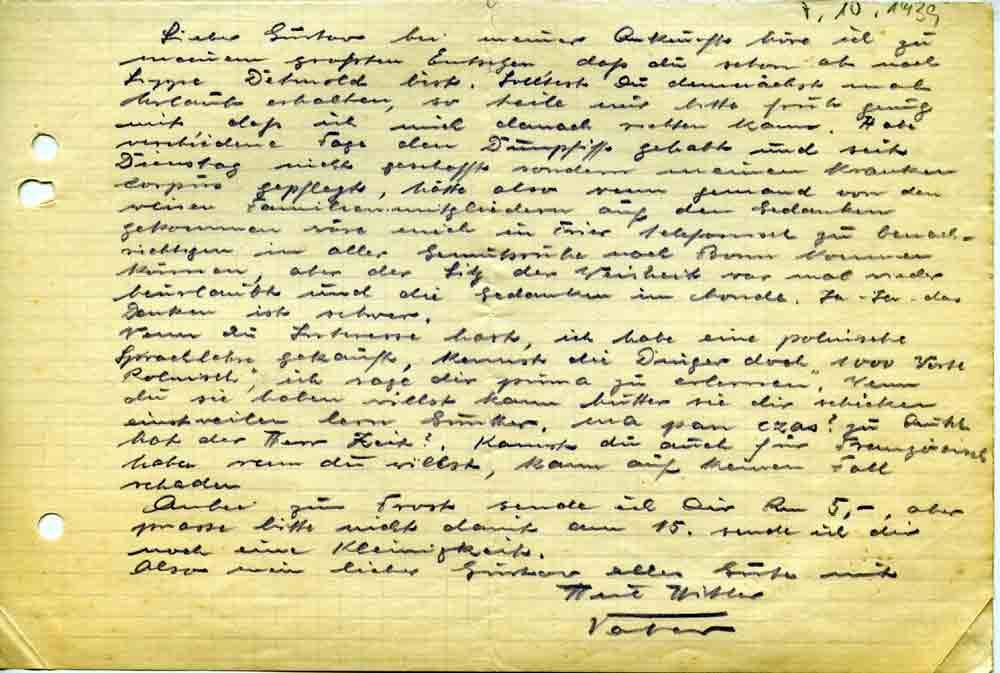 7. 10. 1939
Lieber Gustav bei meiner Ankunft höre ich zu
meinem großten Entsezen daß du schon ab nach
Lippe Detmold bist. Solltest Du demnächst mal
Urlaub erhalten, so teile mir bitte früh genug
mit daß ich mich danach richten kann. Habe
verschiedene Tage den Dünnpfiff gehabt und seit
Dienstag nicht geschafft sondern meinen kranken
Corpus gepflegt, hätte also wenn jemand von den
weisen Familienmitgliedern auf den Gedanken
gekommen wäre mich in Trier telefonisch zu benach-
richtigen in aller Gemütsruhe nach Bonn kommen
können, aber der Sitz der Weisheit war mal wieder
beurlaubt und die Gedanken im Monde. Ja-Ja-das
Denken ist schwer.
Wenn du Interesse hast, ich habe eine polnische
Sprachlehre gekauft, kennst die Dinger doch „1000 Worte
Polnisch", ich sage dir prima zu erlernen". Wenn
du sie haben willst kann Mutter sie dir schicken
einstweilen lern Günther. ma pan czas? zu
hat der Herr Zeit?. Kannst du auch für Französisch
haben wenn du willst, kann auf keinen Fall
schaden
Anbei zum Trost sende ich Dir Rm 5,-, aber
prasse bitte nicht damit am 15. sende ich dir
noch eine Kleinigkeit.
Also mein lieber Gustav alles Gute mit
Heil Hitler
Vater